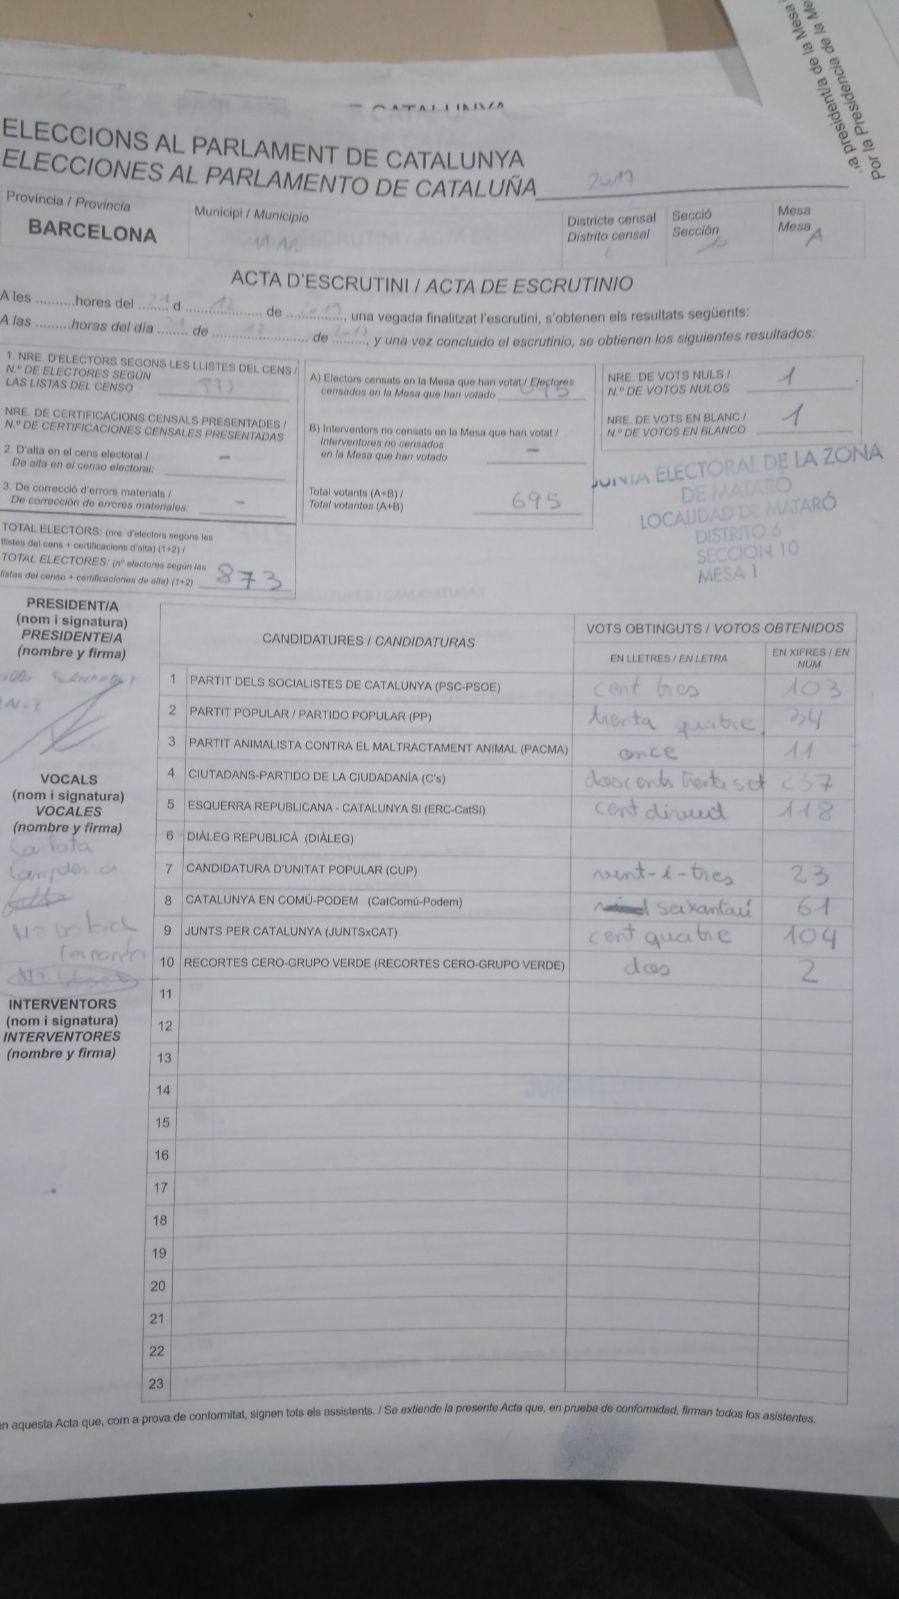 la president/a de la Mesa
Por la Presidencia de la Me
CATALUNYA
ELECCIONS AL PARLAMENT DE CATALUNYA
ELECCIONES AL PARLAMENTO DE CATALUÑA 2017
Província / Provincia
BARCELONA
Municipi / Municipio
Districte censal
Distrito censal
6
Secció
Sección
10
Mesa
Mesa
A
ACTA D'ESCRUTINI / ACTA DE ESCRUTINIO
A les ..........hores del ........ 21 d ........ 12 ........ de ........ 2017, una vegada finalitzat l'escrutini, s'obtenen els resultats següents:
A las ..........horas del día ........ 21 de ........ 12 ........ de ........ 2017, y una vez concluido el escrutinio, se obtienen los siguientes resultados:
1. NRE. D'ELECTORS SEGONS LES LLISTES DEL CENS /
N.º DE ELECTORES SEGÚN
LAS LISTAS DEL CENSO 873
NRE. DE CERTIFICACIONS CENSALS PRESENTADES /
N.º DE CERTIFICACIONES CENSALES PRESENTADAS
2. D'alta en el cens electoral /
De alta en el censo electoral: -
3. De correcció d'errors materials /
De corrección de errores materiales: -
TOTAL ELECTORS: (nre. d'electors segons les
llistes del cens + certificacions d'alta) (1+2) /
TOTAL ELECTORES: (nº electores según las
listas del censo + certificaciones de alta) (1+2) 873
A) Electors censats en la Mesa que han votat / Electores
censados en la Mesa que han votado 695
B) Interventors no censats en la Mesa que han votat /
Interventores no censados
en la Mesa que han votado -
Total votants (A+B) /
Total votantes (A+B) 695
NRE. DE VOTS NULS /
N.º DE VOTOS NULOS 1
NRE. DE VOTS EN BLANC /
N.º DE VOTOS EN BLANCO 1
JUNTA ELECTORAL DE LA ZONA
DE MATARÓ
LOCALIDAD DE MATARÓ
DISTRITO 6
SECCION 10
MESA 1
PRESIDENT/A
(nom i signatura)
PRESIDENTE/A
(nombre y firma)
VOCALS
(nom i signatura)
VOCALES
(nombre y firma)
Carlota
INTERVENTORS
(nom i signatura)
INTERVENTORES
(nombre y firma)
CANDIDATURES / CANDIDATURAS
VOTS OBTINGUTS / VOTOS OBTENIDOS
EN LLETRES / EN LETRA
EN XIFRES / EN
NÚM.
1 PARTIT DELS SOCIALISTES DE CATALUNYA (PSC-PSOE) cent tres 103
2 PARTIT POPULAR / PARTIDO POPULAR (PP) trenta quatre 34
3 PARTIT ANIMALISTA CONTRA EL MALTRACTAMENT ANIMAL (PACMA) once 11
4 CIUTADANS-PARTIDO DE LA CIUDADANÍA (C's) doscents trenta set 237
5 ESQUERRA REPUBLICANA - CATALUNYA SI (ERC-CatSí) cent divuit 118
6 DIÀLEG REPUBLICÀ (DIÀLEG)
7 CANDIDATURA D'UNITAT POPULAR (CUP) vint-i-tres 23
8 CATALUNYA EN COMÚ-PODEM (CatComú-Podem) seixantaú 61
9 JUNTS PER CATALUNYA (JUNTSxCAT) cent quatre 104
10 RECORTES CERO-GRUPO VERDE (RECORTES CERO-GRUPO VERDE) dos 2
11
12
13
14
15
16
17
18
19
20
21
22
23
en aquesta Acta que, com a prova de conformitat, signen tots els assistents. / Se extiende la presente Acta que, en prueba de conformidad, firman todos los asistentes.